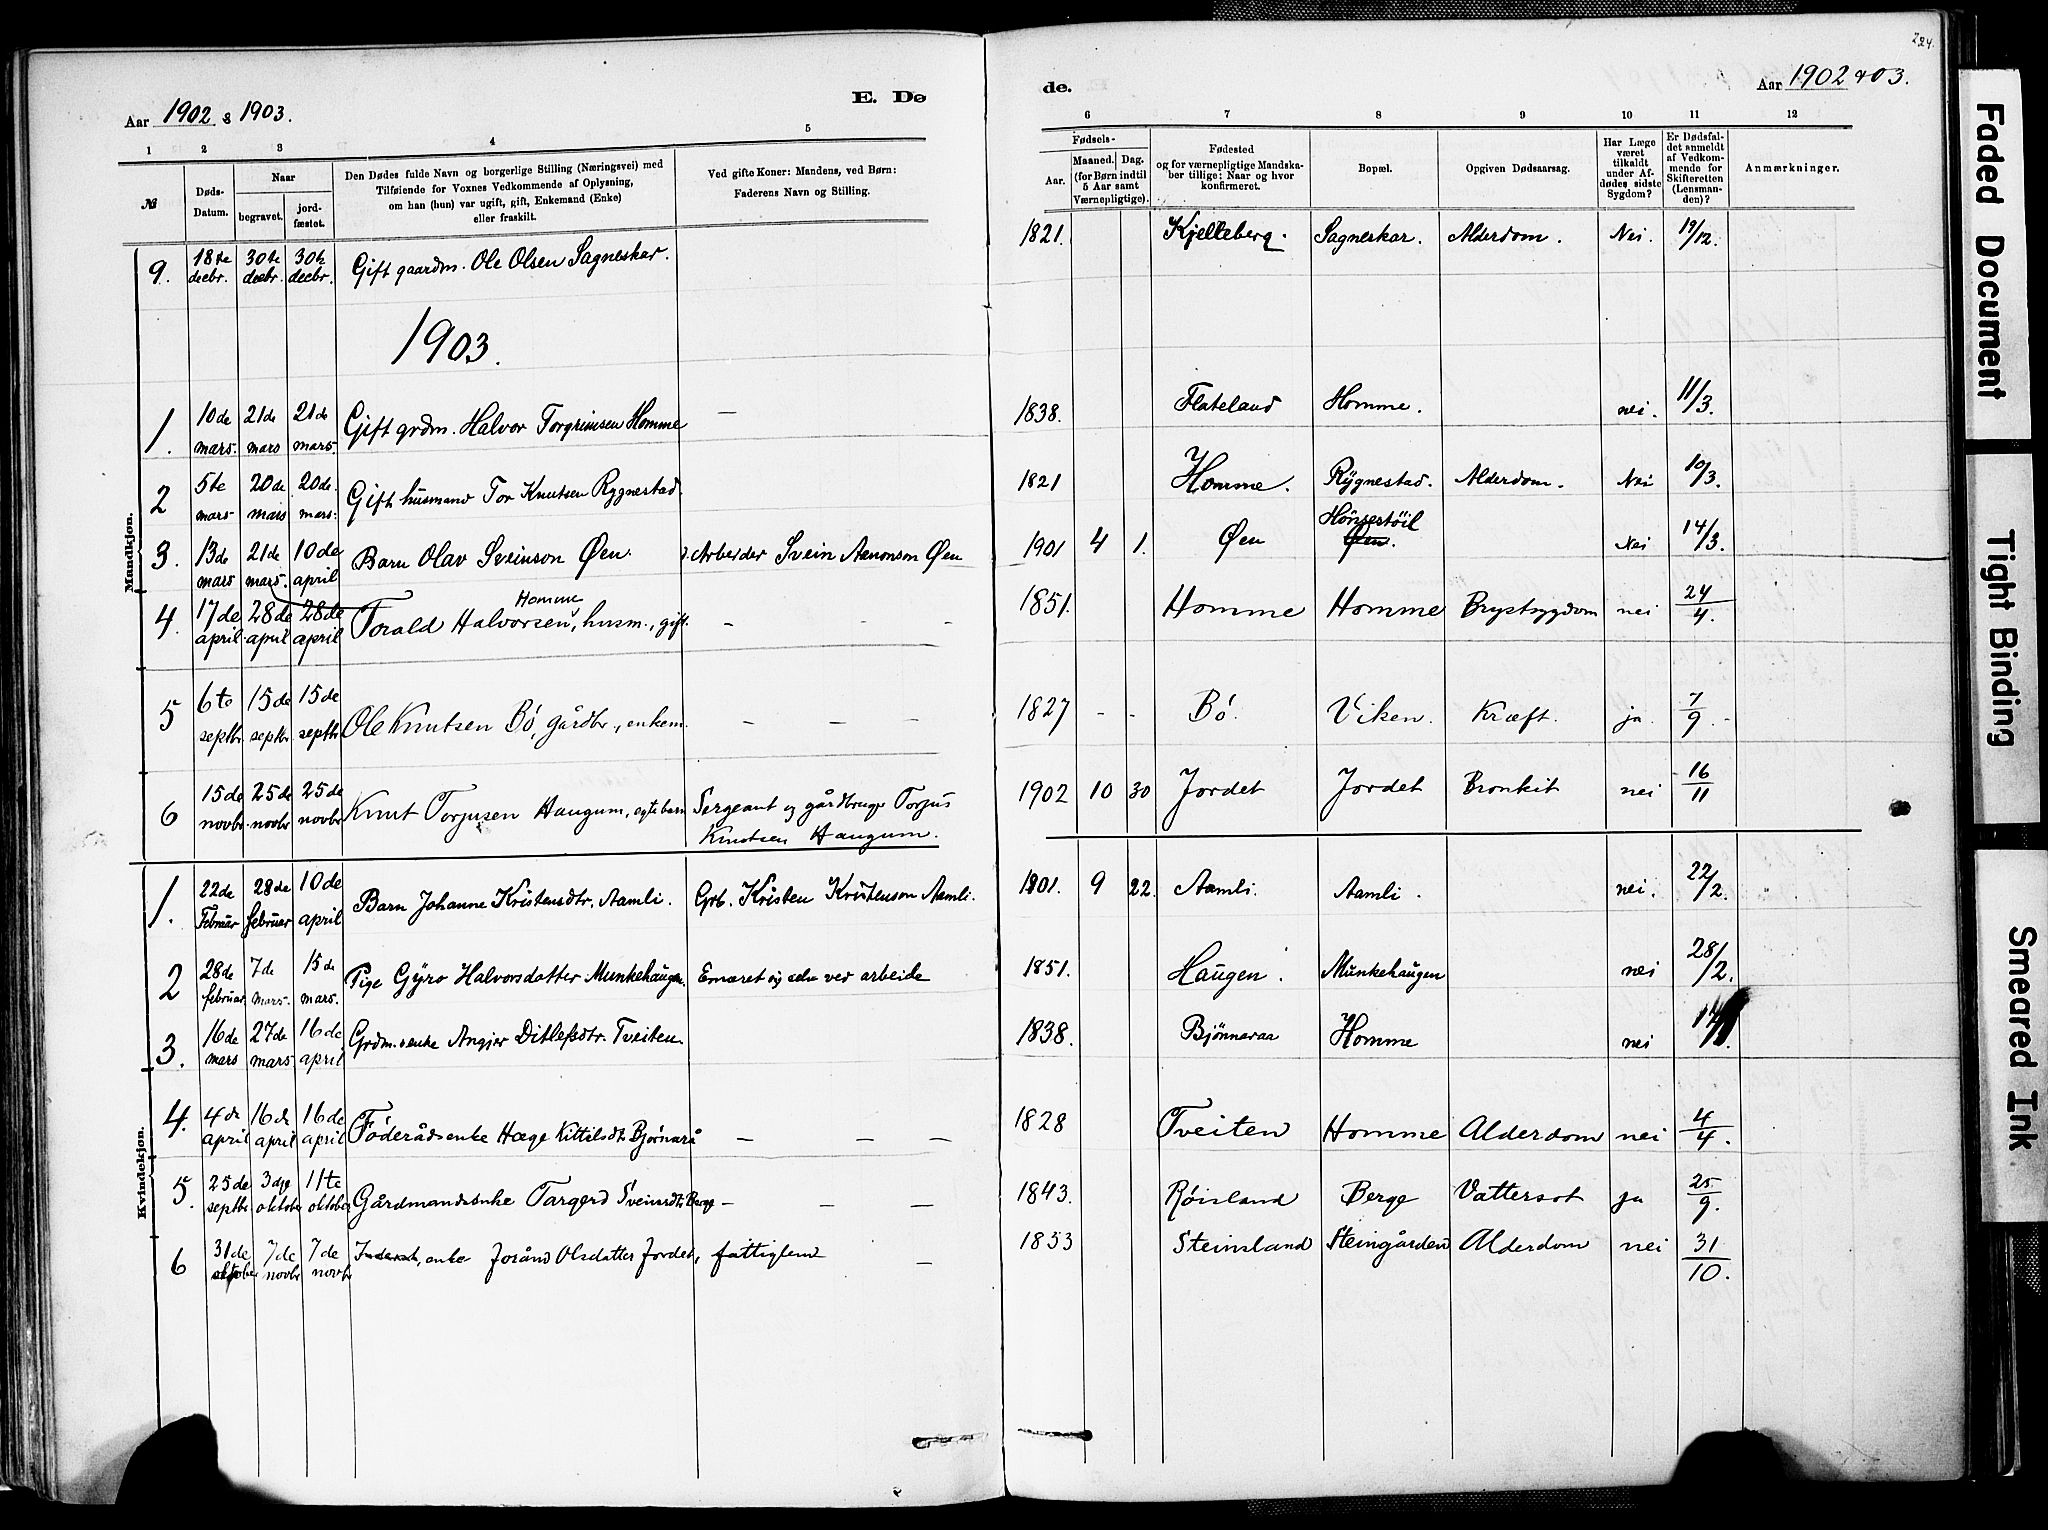 224.
Aar 1902 & 1903.
E. Dø
de.
Aar 1902 & 03.
1 2 3 4 5 6 7 8 9 10 11 12
№
Døds-Datum.
Naar
begravet.
jord-fæstet.
Den Dødes fulde Navn og borgerlige Stilling (Næringsvei) med
Tilføiende for Voxnes Vedkommende af Oplysning,
om han (hun) var ugift, gift, Enkemand (Enke)
eller fraskilt.
Ved gifte Koner: Mandens, ved Børn:
Faderens Navn og Stilling.
Fødsels-
Aar.
Maaned. Dag.
(for Børn indtil
5 Aar samt
Værnepligtige).
Fødested
og for værnepligtige Mandska-
ber tillige: Naar og hvor
konfirmeret.
Bopæl.
Opgiven Dødsaarsag.
Har Læge
været
tilkaldt
under Af-
dødes sidste
Sygdom?
Er Dødsfal-
det anmeldt
af Vedkom-
mende for
Skifteretten
(Lensman-
den)?
Anmærkninger.
9. 18te decbr. 30te decbr. 30te decbr. Gift gaardm. Ole Olsen Sagneskar. 1821. Kjelleberg. Sagneskar. Alderdom. Nei. 19/12.
1903.
Mandkjøn.
1. 10de mars. 21de mars 21de mars. Gift grdm. Halvor Torgrimsen Homme — 1838. Flateland Homme. nei. 11/3.
2 5te mars 20de mars 20de mars. Gift husmand Tor Knutsen Rygnestad. 1821 Homme. Rygnestad. Alderdom. Nei 10/3.
3. 13de mars 21de mars. 10de april Barn Olav Sveinson Øen. Arbeider Svein Aanonson Øen 1901 4 1. Øen Hönsestöil Øen. Nei 14/3.
4. 17de april 28de april 28de april Torald Halvorsen Homme, husm., gift. – – – 1851. Homme Homme Brystsygdom nei 24/4.
5 6te septbr 15de septbr 15de septbr Ole Knutsen Bö, gårdbr., enkem. – – – 1827 - - Bö. Viken. Kræft. ja. 7/9.
6 15de novbr. 25de novbr 25de novbr Knut Torjusen Haugum, egtebarn Sergeant og gårdbruger Torjus Knutsen Haugum. 1902 10 30 Jordet Jordet Bronkit nei 16/11
Kvindekjøn.
1. 22de Februar 28de februar 10de april Barn Johanne Kristensdtr. Aamli. Grb. Kristen Kristenson Aamli. 1801. 9 22. Aamli. Aamli. nei. 22/2.
2 28de februar 7de mars. 15de mars. Pige Gyro Halvorsdatter Munkehaugen. Ernæret sig selv ved arbeide 1851. Haugen. Munkehaugen nei 28/2.
3. 16de mars 27de mars 16de april Grdm.s enke Angjer Ditlefsdtr. Tveiten. 1838. Bjönnaraa Homme nei
4. 4de april 16de april 16de april Föderådsenke Hæge Kittilsdtr Bjørnarå — — — 1828 Tveiten Homme Alderdom nei 4/4.
5. 25de septbr 3dje oktober 11te oktober Gårdmandsenke Targerd Sveinsdtr Berge – – – 1843. Röisland Berge Vattersot ja 25/9.
6 31de oktober 7de novbr 7de novbr Inderst, enke Jorånd Olsdatter Jordet, fattiglem – 1853 Steinsland Steingården Alderdom nei 31/10.
Faded Document
Tight Binding
Smeared Ink